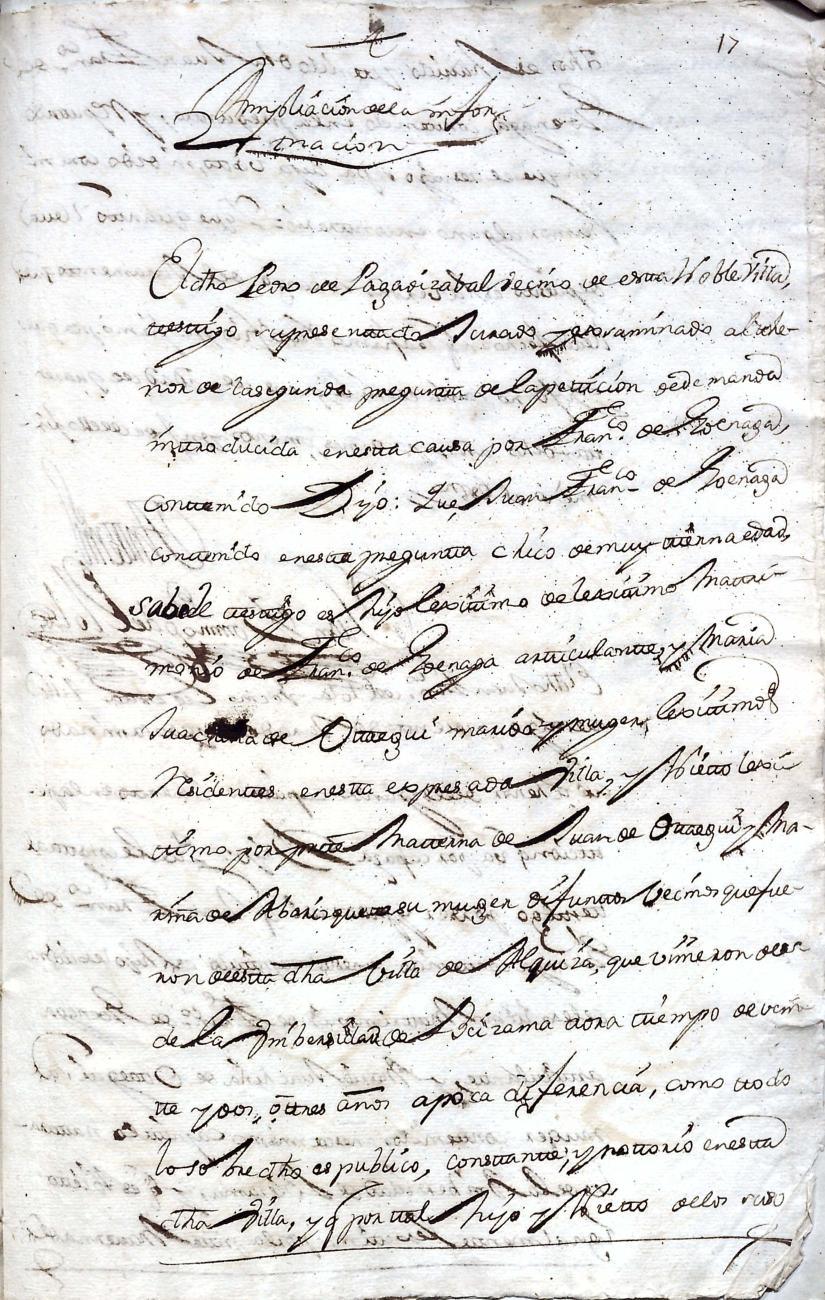 17
Ampliación de la infor
macion
El dho Pedro de Lagadizabal vecino de esta Noble Villa,
testigo representado Jurado y essaminado al the-
nor de la segunda pregunta de la petticion de demanda
introducida, en estta causa por Fran.co de Roenaga,
contten.do Dijo: Que Juan Fran.co de Roenaga
conten.do en estta pregunta chico de muy ttierna edad,
sabe el ttestigo es hijo lexitimo de lexitimo Mattri-
monio de Fran.co de Roenaga articulante, y Maria
Juachina de Ottaegui marido y muger lexitimos
Residentes en estta expresada Villa, y Nietto lexi-
ttimo por partte Matterna de Juan de Ottaegui y Ma-
rina de su muger difuntos vecinos que fue-
ron de estta dha Villa de Alquiza, que vinieron des-
de la Vnibersidad de Icizama ttora tiempo de vein-
tte y dos, o ttres años a poca diferencia, como ttodo
lo sobre dho es publico, constante, y nottorio en estta
dha Villa, y q por ttal hijo y Nietto de los suso